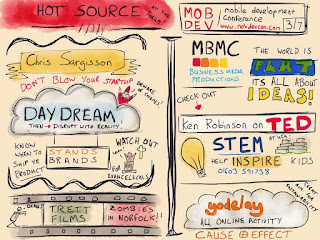 HOT SOURCE
AT THE
FORUM!
Chris Sargisson
DON'T BLOW YOUR STARTUP
BEWARE
DAY DREAM
THEN → DISRUPT WITH REALITY.
KNOW
WHEN TO
SHIP YE
PRODUCT
STANDS
BRANDS
WATCH OUT
FOR
TRETT
FILMS
ZOMBIES
IN NORFOLK!
MOB
DEV
mobile development
Conference
www.mobdevcon.com
3/7
MBMC
BUSINESS MEDIA
PRODUCTIONS
THE WORLD IS
FLAT
IT'S ALL ABOUT
IDEAS!
CHECK OUT
Ken Robinson on TED
STEM
HELP INSPIRE KIDS
01603 591738
yodelay
ALL ONLINE ACTIVITY
CAUSE EFFECT